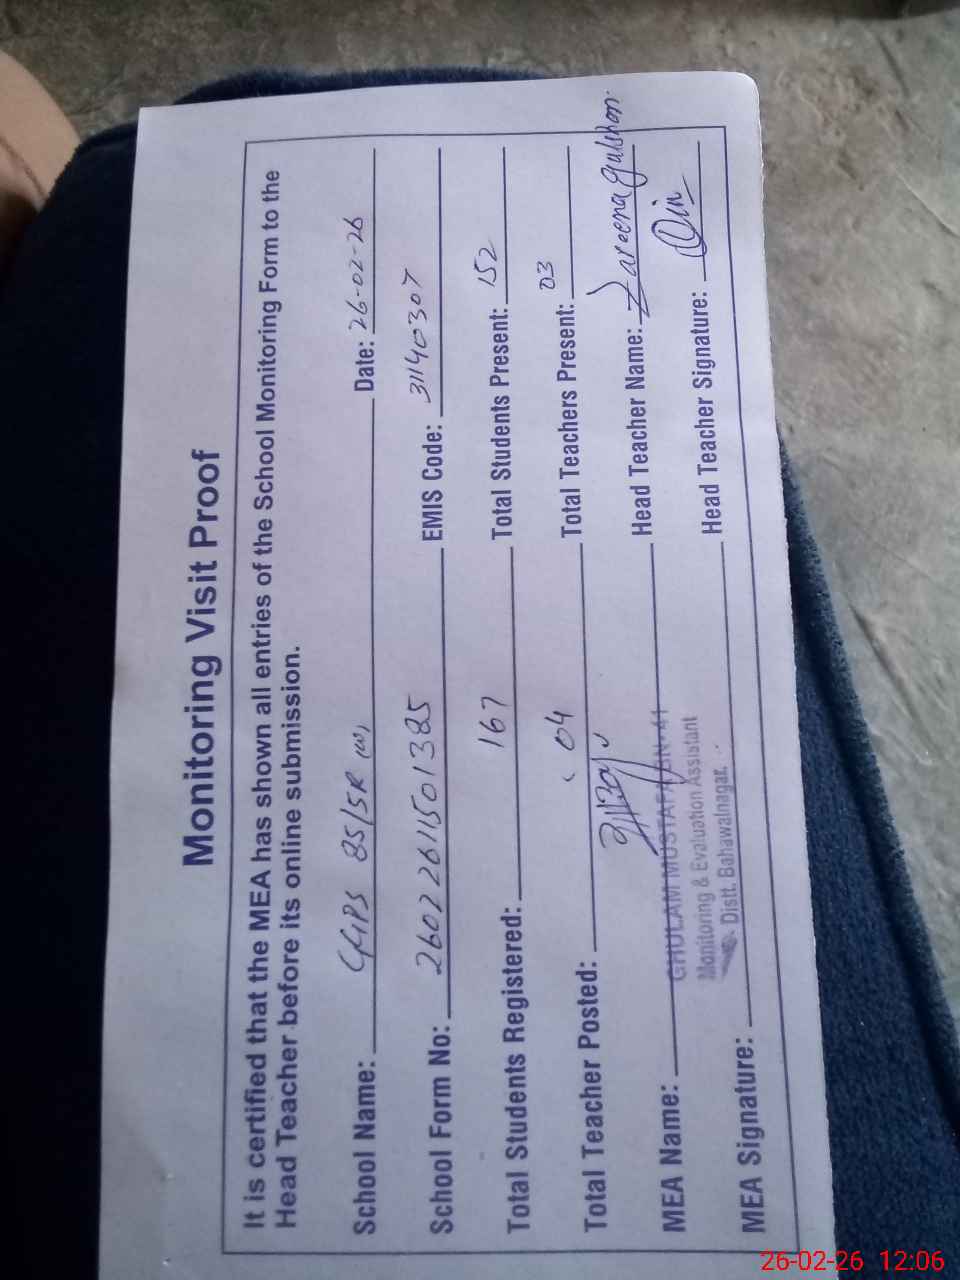 Monitoring Visit Proof
It is certified that the MEA has shown all entries of the School Monitoring Form to the
Head Teacher before its online submission.
School Name: GGPS 85/5R (W) Date: 26-02-26
School Form No: 26022611501385 EMIS Code: 31140307
Total Students Registered: 167 Total Students Present: 152
Total Teacher Posted: 04 Total Teachers Present: 03
MEA Name: GHULAM MUSTAFA BN-41 Head Teacher Name: Zareena Gulshan.
Monitoring & Evaluation Assistant
Distt. Bahawalnagar.
MEA Signature: Head Teacher Signature:
26-02-26 12:06